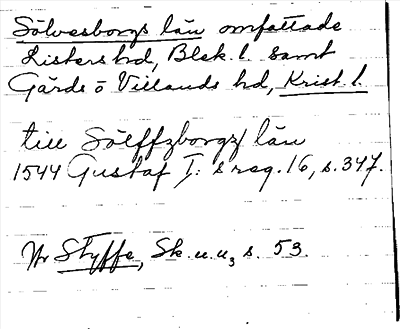 Sölvesborgs län omfattade
Listers hd, Blek. l. samt
Gärds o Villands hd, Krist. l.
till Sölffzborgz län
1544 Gustaf I: s reg. 16, s. 347.
Styffe, Sk. u. u, s. 53.